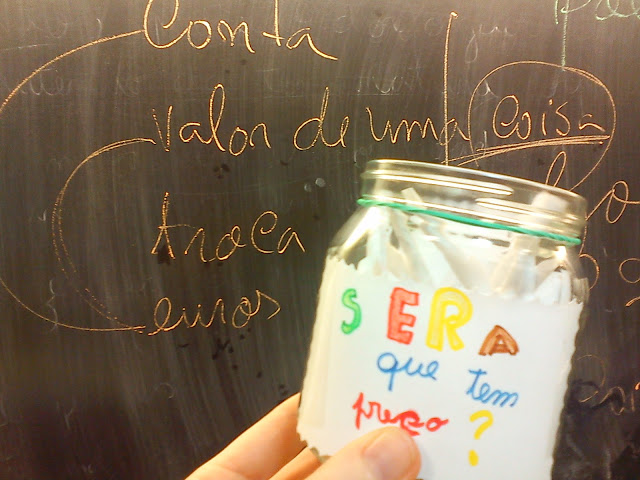 Conta
valor de uma coisa
troca
euros
SERA
que tem
preço ?